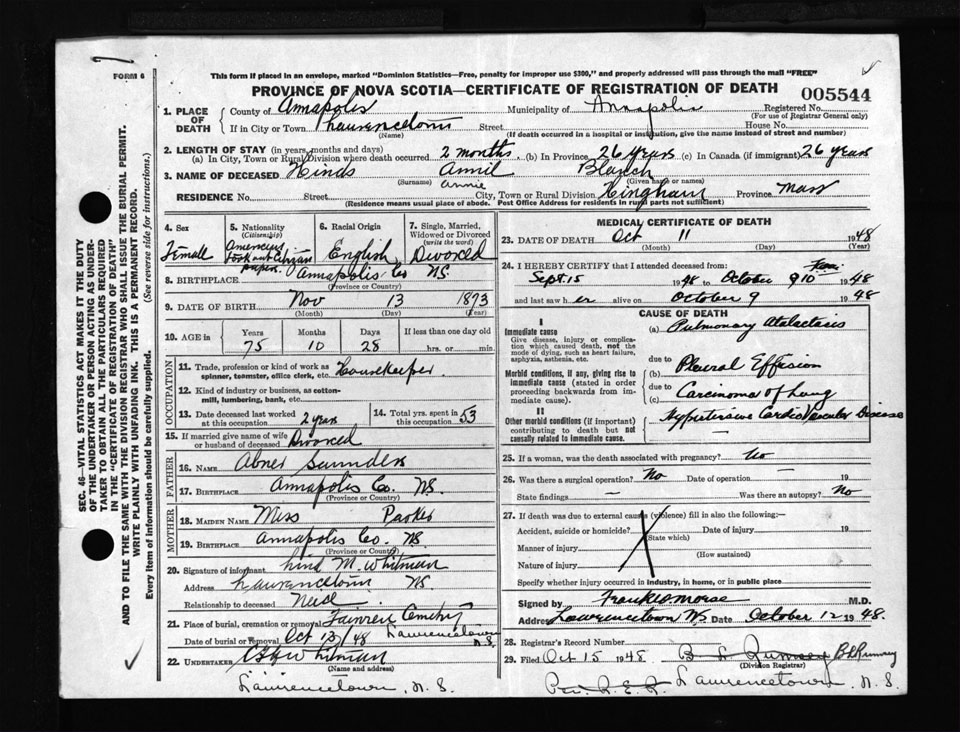 FORM 6
This form if placed in an envelope, marked "Dominion Statistics—Free, penalty for improper use $300," and properly addressed will pass through the mail "FREE"
PROVINCE OF NOVA SCOTIA—CERTIFICATE OF REGISTRATION OF DEATH
005544
1. PLACE OF DEATH
County of Annapolis Municipality of Annapolis Registered No.
(For use of Registrar General only)
If in City or Town Laurencetown Street House No.
(Name) (If death occurred in a hospital or institution, give the name instead of street and number)
2. LENGTH OF STAY (in years, months and days)
(a) In City, Town or Rural Division where death occurred 2 months (b) In Province 26 years (c) In Canada (if immigrant) 26 years
3. NAME OF DECEASED Hinds Annie Blanch
(Surname) Annie (Given name or names)
RESIDENCE No. Street City, Town or Rural Division Hingham Province Mass
(Residence means usual place of abode. Post Office Address for residents in rural parts not sufficient)
4. Sex
Female
5. Nationality
(Citizenship)
took out Citizen
papers
6. Racial Origin
English
7. Single, Married,
Widowed or Divorced
(write the word)
Divorced
8. BIRTHPLACE Annapolis Co NS
(Province or Country)
9. DATE OF BIRTH Nov 13 1873
(Month) (Day) (Year)
10. AGE in
Years Months Days If less than one day old
75 10 28 hrs. or min.
OCCUPATION
11. Trade, profession or kind of work as
spinner, teamster, office clerk, etc. Housekeeper
12. Kind of industry or business, as cotton-
mill, lumbering, bank, etc.
13. Date deceased last worked
at this occupation 2 years
14. Total yrs. spent in
this occupation 53
15. If married give name of wife
or husband of deceased Divorced
FATHER
16. NAME Abner Saunders
17. BIRTHPLACE Annapolis Co. NS.
(Province or Country)
MOTHER
18. MAIDEN NAME Miss Parker
19. BIRTHPLACE Annapolis Co. NS.
(Province or Country)
20. Signature of informant M. Whitman
Address Laurencetown NS
Relationship to deceased
21. Place of burial, cremation or removal
Date of burial or removal Oct 13/48 Laurencetown
N.S.
22. UNDERTAKER Whitman
(Name and address)
Lawrencetown, N.S.
MEDICAL CERTIFICATE OF DEATH
23. DATE OF DEATH Oct 11 1948
(Month) (Day) (Year)
24. I HEREBY CERTIFY that I attended deceased from:
Sept. 15 1948 to October 9 10 1948
and last saw her alive on October 9 1948
CAUSE OF DEATH
I
Immediate cause
Give disease, injury or complication which caused death, not the mode of dying, such as heart failure, asphyxia, asthenia, etc.
(a) Pulmonary Atalactasis
due to
Morbid conditions, if any, giving rise to immediate cause (stated in order proceeding backwards from immediate cause).
(b) Pleural Effusion
due to
(c) Carcinoma of Lung
II
Other morbid conditions (if important) contributing to death but not causally related to immediate cause.
Hypertensive Cardio Vascular Disease
25. If a woman, was the death associated with pregnancy? No
26. Was there a surgical operation? No Date of operation — 19
State findings — Was there an autopsy? No
27. If death was due to external causes (violence) fill in also the following:—
Accident, suicide or homicide? Date of injury 19
(State which)
Manner of injury
(How sustained)
Nature of injury
Specify whether injury occurred in industry, in home, or in public place
Signed by Frank Morse M.D.
Address Lawrencetown NS Date October 12 1948.
28. Registrar's Record Number
29. Filed Oct 15 1948 B L Rumsey B L Rumsey
(Division Registrar)
Lawrencetown, N.S.
SEC. 46—VITAL STATISTICS ACT MAKES IT THE DUTY
OF THE UNDERTAKER OR PERSON ACTING AS UNDER-
TAKER TO OBTAIN ALL THE PARTICULARS REQUIRED
IN THE "CERTIFICATE OF REGISTRATION OF DEATH"
AND TO FILE THE SAME WITH THE DIVISION REGISTRAR WHO SHALL ISSUE THE BURIAL PERMIT.
WRITE PLAINLY WITH UNFADING INK. THIS IS A PERMANENT RECORD.
Every item of information should be carefully supplied. (See reverse side for instructions.)